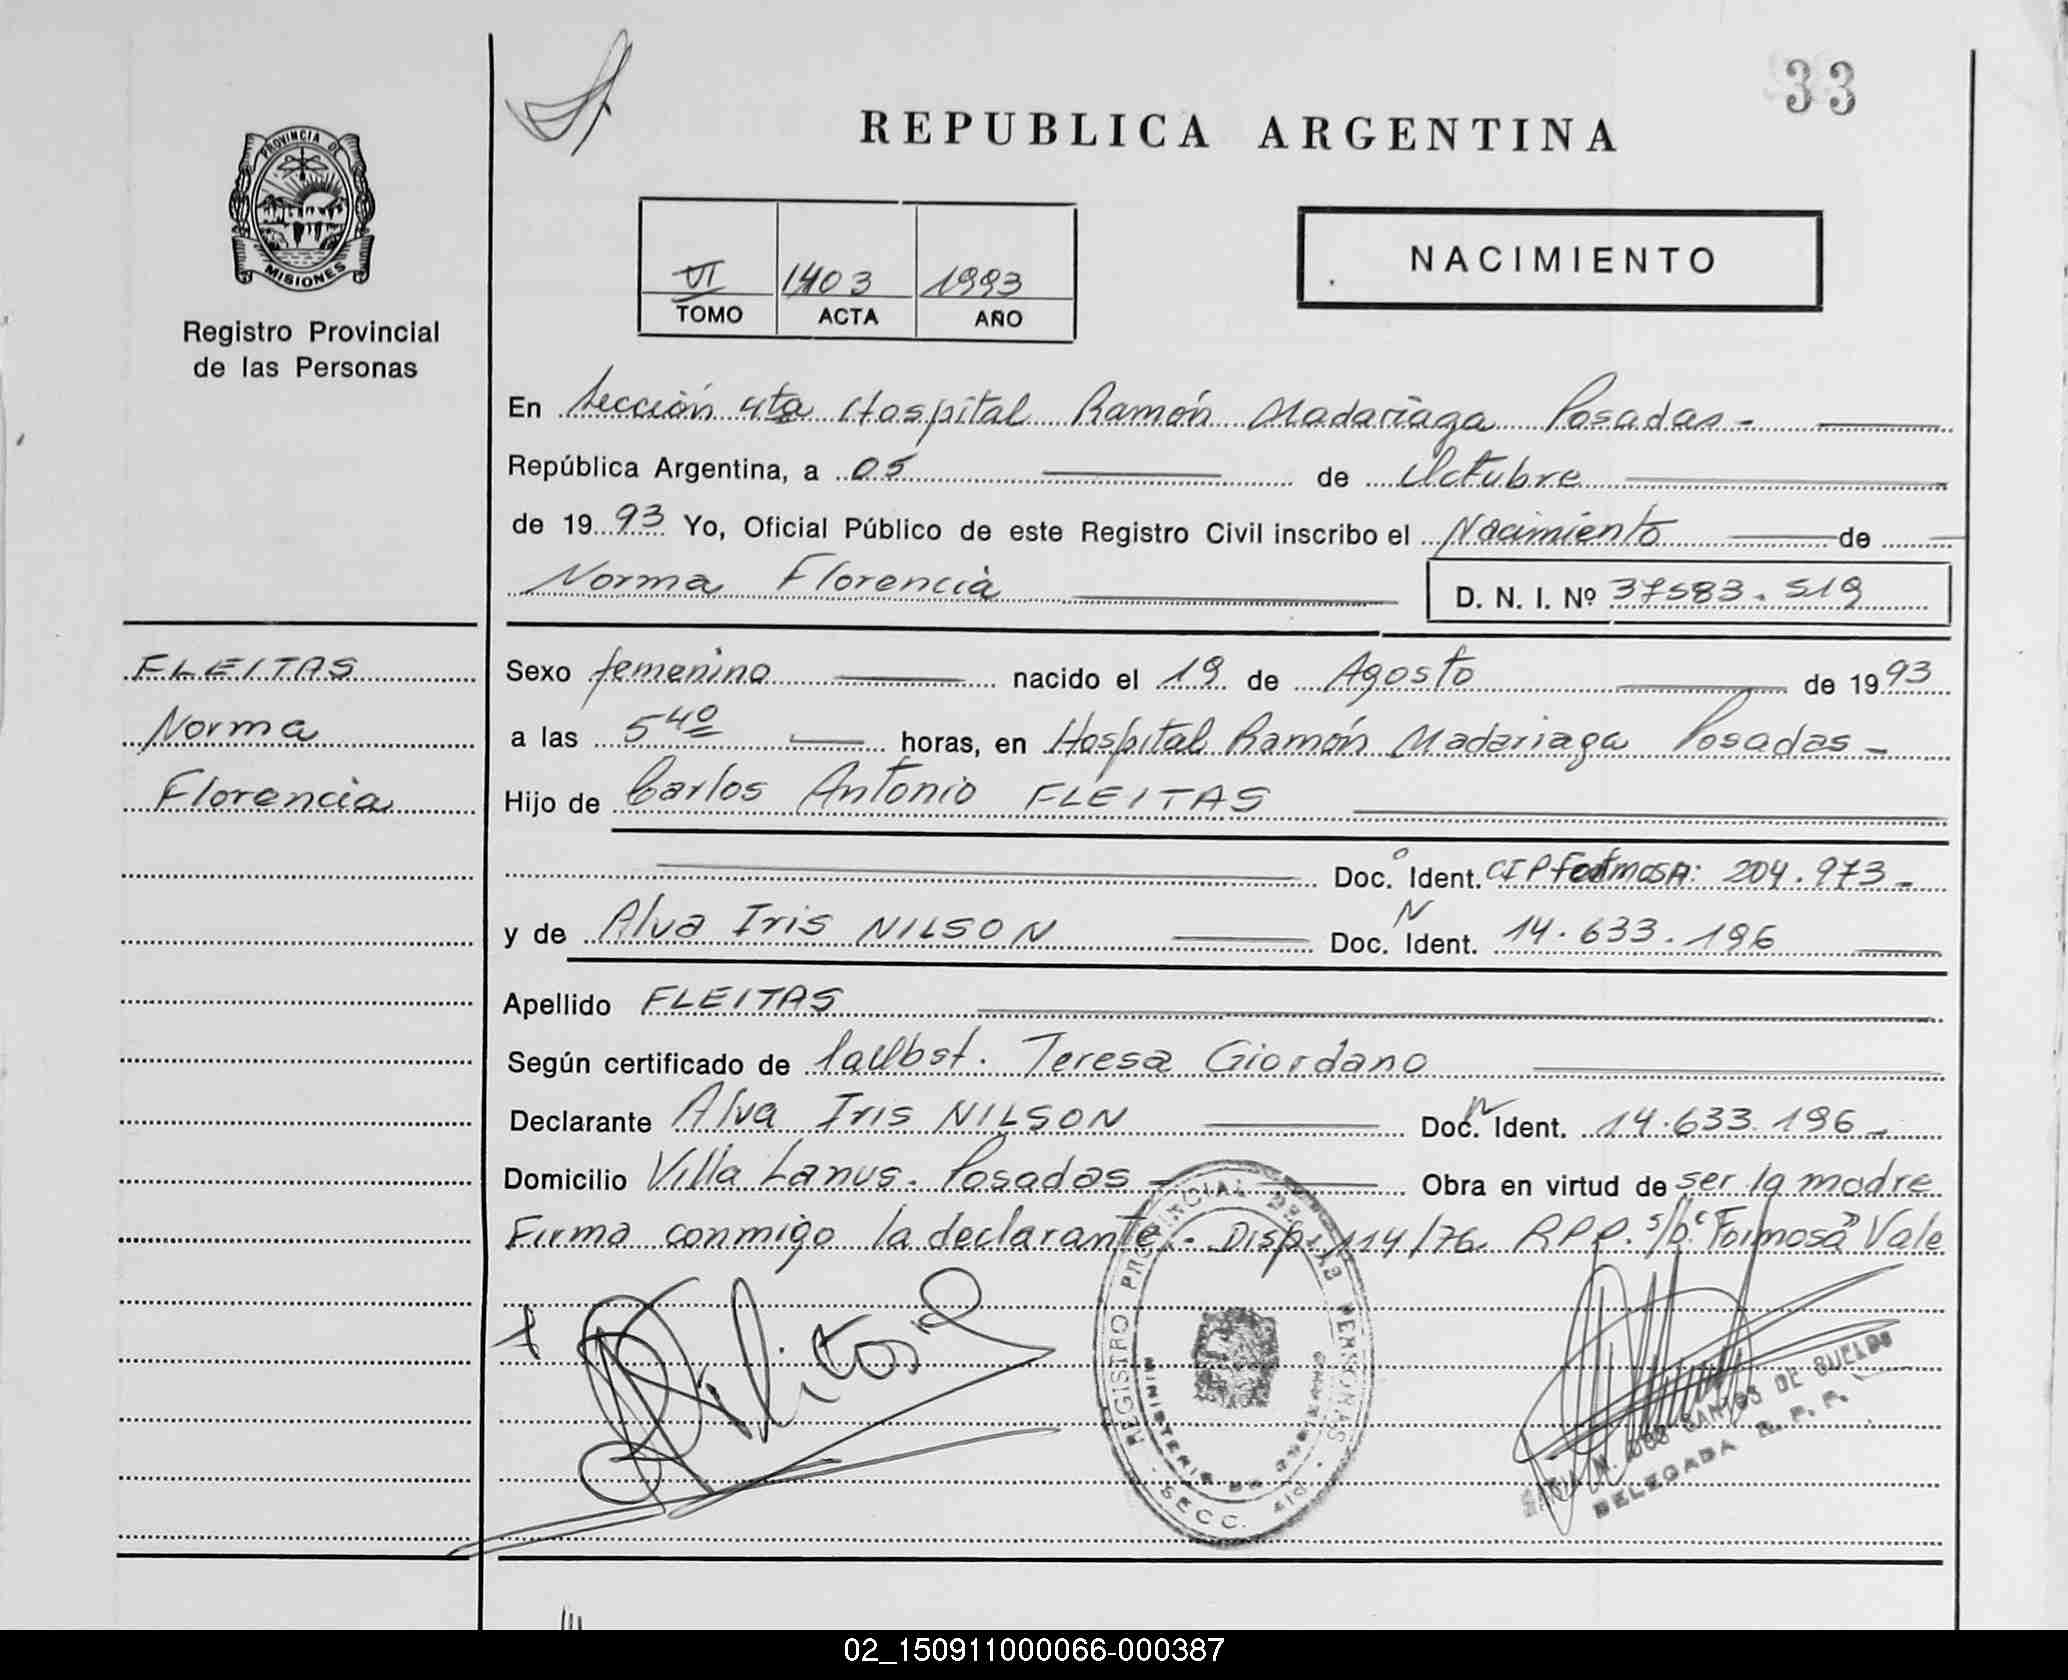 33
REPUBLICA ARGENTINA
PROVINCIA DE
MISIONES
Registro Provincial
de las Personas
NACIMIENTO
VI 1403 1993
TOMO ACTA AÑO
En Sección 4ta Hospital Ramón Madariaga Posadas-
República Argentina, a 05 de Octubre
de 1993 Yo, Oficial Público de este Registro Civil inscribo el Nacimiento de
Norma Florencia D. N. I. Nº 37583.519
FLEITAS
Norma
Florencia
Sexo femenino nacido el 19 de Agosto de 1993
a las 5 40 horas, en Hospital Ramón Madariaga Posadas-
Hijo de Carlos Antonio FLEITAS
Doc. Ident. CIP Formosa: 204.973-
y de Alva Iris NILSON Doc. N Ident. 14.633.196
Apellido FLEITAS
Según certificado de Teresa Giordano
Declarante Alva Iris NILSON Doc. N Ident. 14.633.196-
Domicilio Villa Lanus. Posadas- Obra en virtud de ser la madre
Firma conmigo la declarante.- Disp. 114/76. RPP. s/b "Formosa" Vale
REGISTRO PROVINCIAL DE LAS PERSONAS
MINISTERIO DE GOBIERNO
SECC. 4ta.
DOS SANTOS DE SUELDO
DELEGADA R. P. P.
02_150911000066-000387